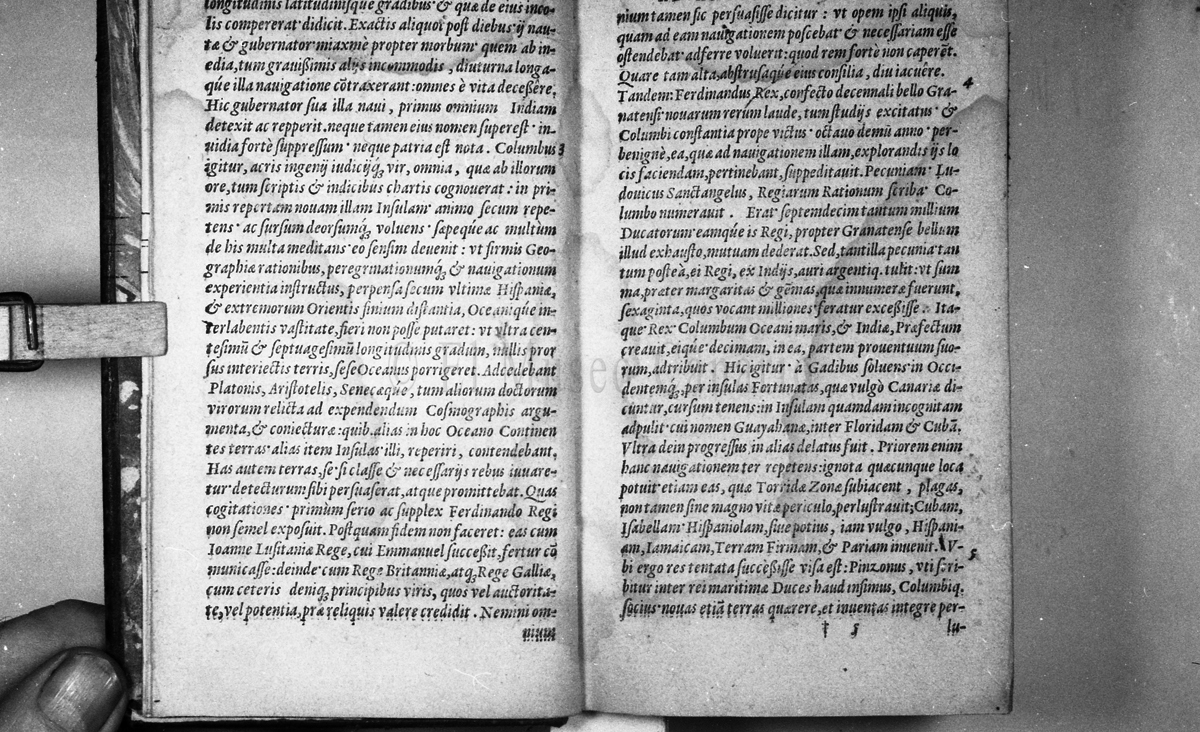 longitudinis latitudinisque gradibus· & quæ de eius inco-
lis compererat·didicit. Exactis aliquot post diebus·ij nau-
tæ & gubernator·miaxmè propter morbum· quem ab in-
edia, tum grauißimis alijs incommodis, diuturna longa-
qúe illa nauigatione cōtraxerant:omnes è vita deceßêre.
Hic gubernator sua illa naui, primus omnium Indiam
detexit ac repperit. neque tamen eius nomen superest· in-
uidia fortè suppressum· neque patria est nota. Columbus
3
igitur, acris ingenij iudicijq́; vir, omnia, quæ ab illorum
ore, tum scriptis & indicibus chartis cognouerat: in pri-
mis repertam nouam illam Insulam· animo secum repe-
tens· ac sursum deorsumq́; voluens· sæpeqúe ac multùm
de his multa meditans· eò sensim deuenit: vt firmis Geo-
graphiæ rationibus, peregrinationumq́; & nauigationum
experientia instructus, perpensa secum vltimæ Hispaniæ,
& extremorum Orientis sinium distantia, Oceanique in-
terlabentis vastitate, fieri non posse putaret: vt vltra cen-
tesimū & septuagesimū longitudinis gradum, nullis pror
sus interiectis terris, sese Oceanus porrigeret. Adcedebant
Platonis, Aristotelis, Senecæqúe, tum aliorum doctorum
virorum relicta ad expendendum Cosmographis argu-
menta, & coniecturæ: quib. alias in hoc Oceano Continen
tes terras· alias item Insulas illi, reperiri, contendebant.
Has autem terras, se· si classe & necessarijs rebus iuuare-
tur·detecturum sibi persuaserat, atque promittebat. Quas
cogitationes· primùm serio ac supplex Ferdinando Regi
non semel exposuit. Postquam fidem non faceret: eas cum
Ioanne Lusitaniæ Rege, cui Emmanuel succeßit, fertur cō
municasse: deinde· cum Rege Britanniæ, atq; Rege Galliæ,
cùm ceteris deniq; principibus viris, quos vel auctorita-
te, vel potentia, præ reliquis valere credidit. Nemini om-
nium
nium tamen sic persuasisse dicitur: vt opem ipsi aliquis,
quam ad eam nauigationem poscebat· & necessariam esse
ostendebat·adferre voluerit: quod rem fortè non caperēt.
Quare tam alta, abstrusaqúe eius consilia, diu iacuêre.
4
Tandem: Ferdinandus Rex, confecto decennali bello Gra-
natensi· nouarum rerum laude, tum studijs excitatus· &
Columbi constantia prope victus· octauo demū anno· per-
benignè, ea, quæ ad nauigationem illam, explorandis ijs lo
cis faciendam, pertinebant, suppeditauit. Pecuniam· Lu-
douicus Sanctangelus, Regiarum Rationum scriba· Co-
lumbo numerauit. Erat· septemdecim tantum millium
Ducatorum·eamqúe is Regi, propter Granatense bellum
illud exhausto, mutuam dederat. Sed, tantilla pecunia·tan
tum posteà, ei Regi, ex Indijs, auri argentiq. tulit: vt sum
ma, præter margaritas & gēmas, quæ innumeræ fuerunt,
sexaginta, quos vocant milliones·feratur exceßisse. Ita-
que·Rex·Columbum Oceani maris, & Indiæ, Præfectum
creauit, eiqúe·decimam, in ea, partem prouentuum suo-
rum, adtribuit. Hic igitur· à Gadibus soluens·in Occi-
dentemq́;, per insulas Fortunatas, quæ vulgò Canariæ di-
cuntur, cursum tenens: in Insulam quamdam incognitam
adpulit·cui nomen Guayahanæ, inter Floridam & Cubā.
Vltra dein progressus, in alias delatus fuit. Priorem enim
hanc nauigationem ter repetens: ignota quæcunque loca
potuit·etiam eas, quæ Torridæ Zonæ subiacent, plagas,
non tamen sine magno vitæ periculo, perlustrauit; Cubam,
Isabellam· Hispaniolam, siue potius, iam vulgo, Hispani-
am, Iamaicam, Terram Firmam, & Pariam inuenit. V-
5
bi ergo res tentata succeßisse visa est: Pinzonus, vti scri-
bitur inter rei maritimæ Duces haud infimus, Columbiq.
socius·nouas etiā terras quærere, et inuentas integre per-
† 5 lu-